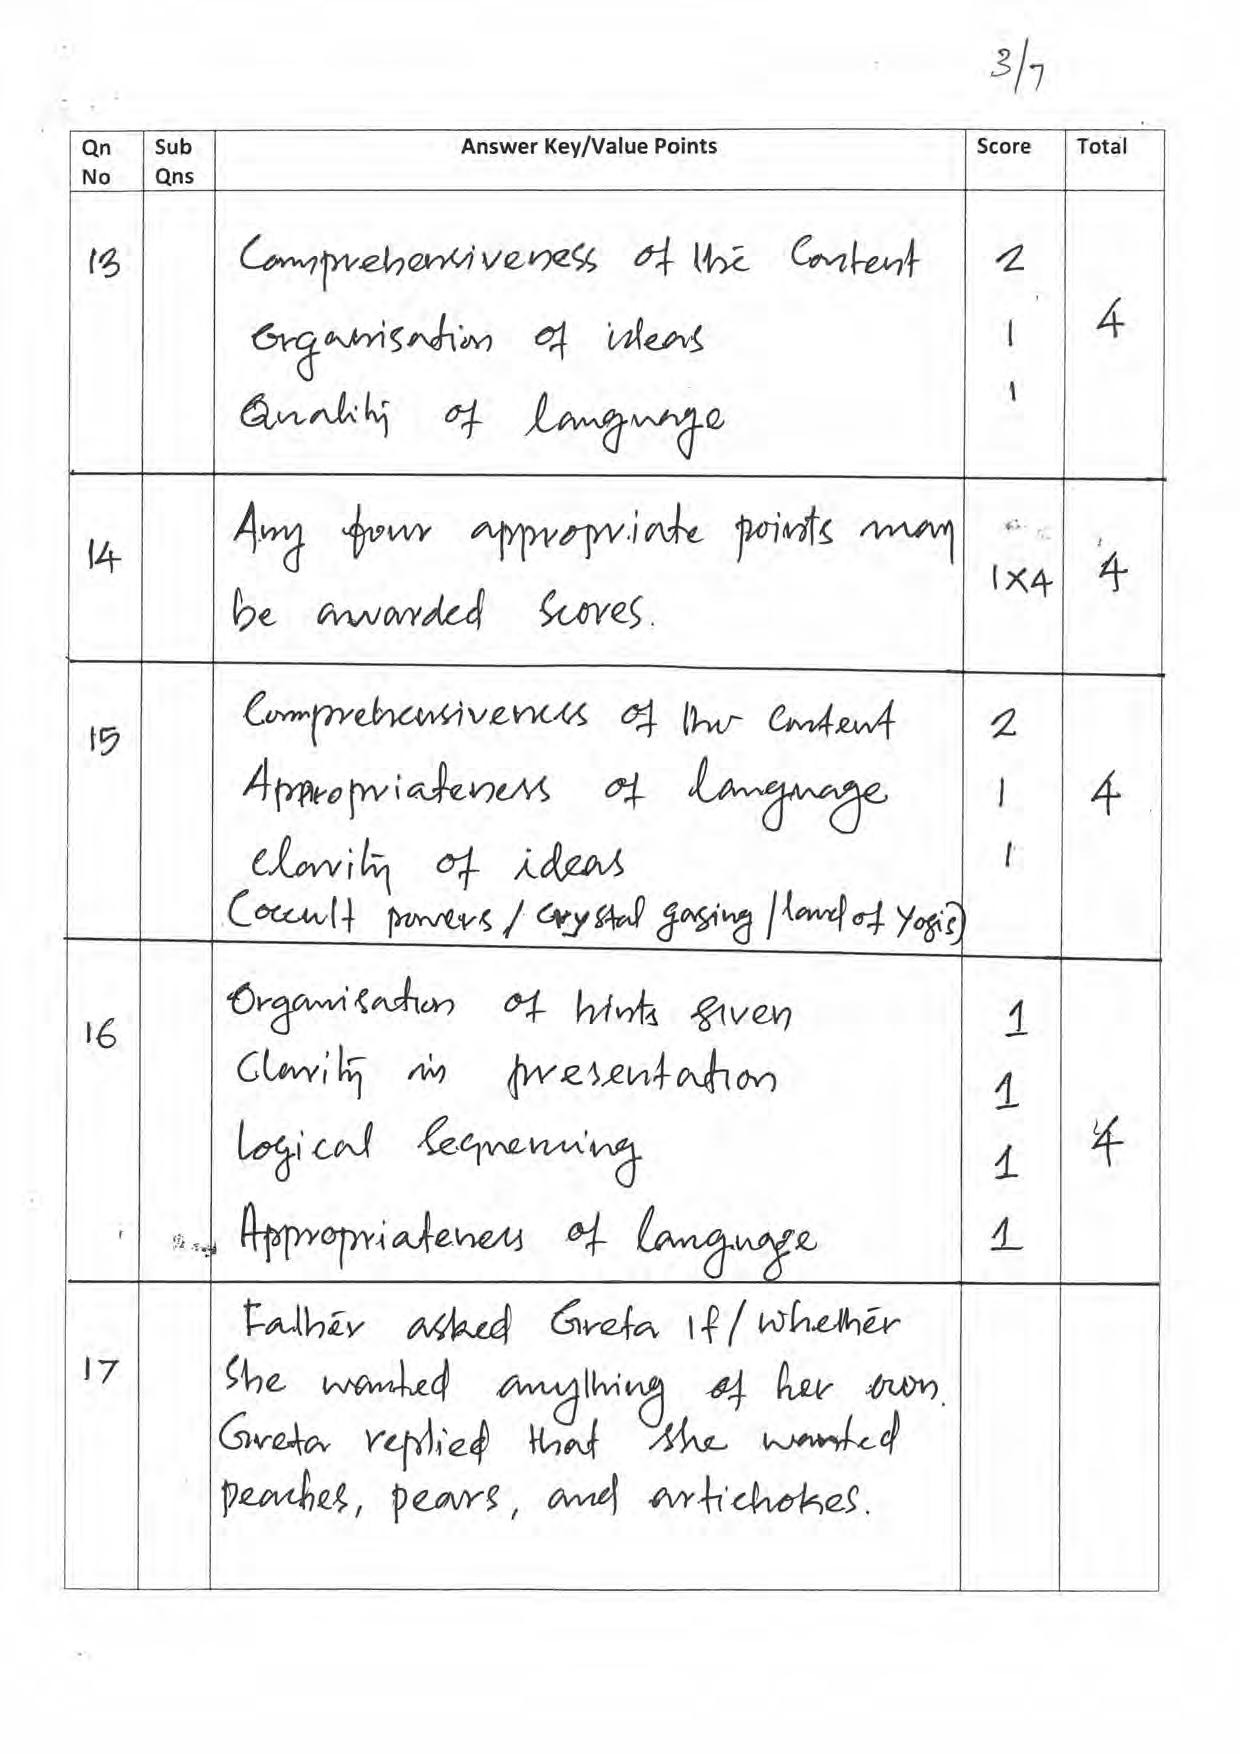 3/7
Qn No Sub Qns Answer Key/Value Points Score Total
13 Comprehensiveness of the Content 2
Organisation of ideas 1 4
Quality of language 1
14 Any four appropriate points may
be awarded Scores. 1x4 4
15 Comprehensiveness of the Content 2
Appropriateness of language 1 4
Clarity of ideas 1
(occult powers / crystal gasing / land of Yogis)
16 Organisation of hints given 1
Clarity in presentation 1
Logical Sequencing 1 4
Appropriateness of language 1
17 Father asked Greta if / whether
She wanted anything of her own.
Greta replied that she wanted
peaches, pears, and artichokes.